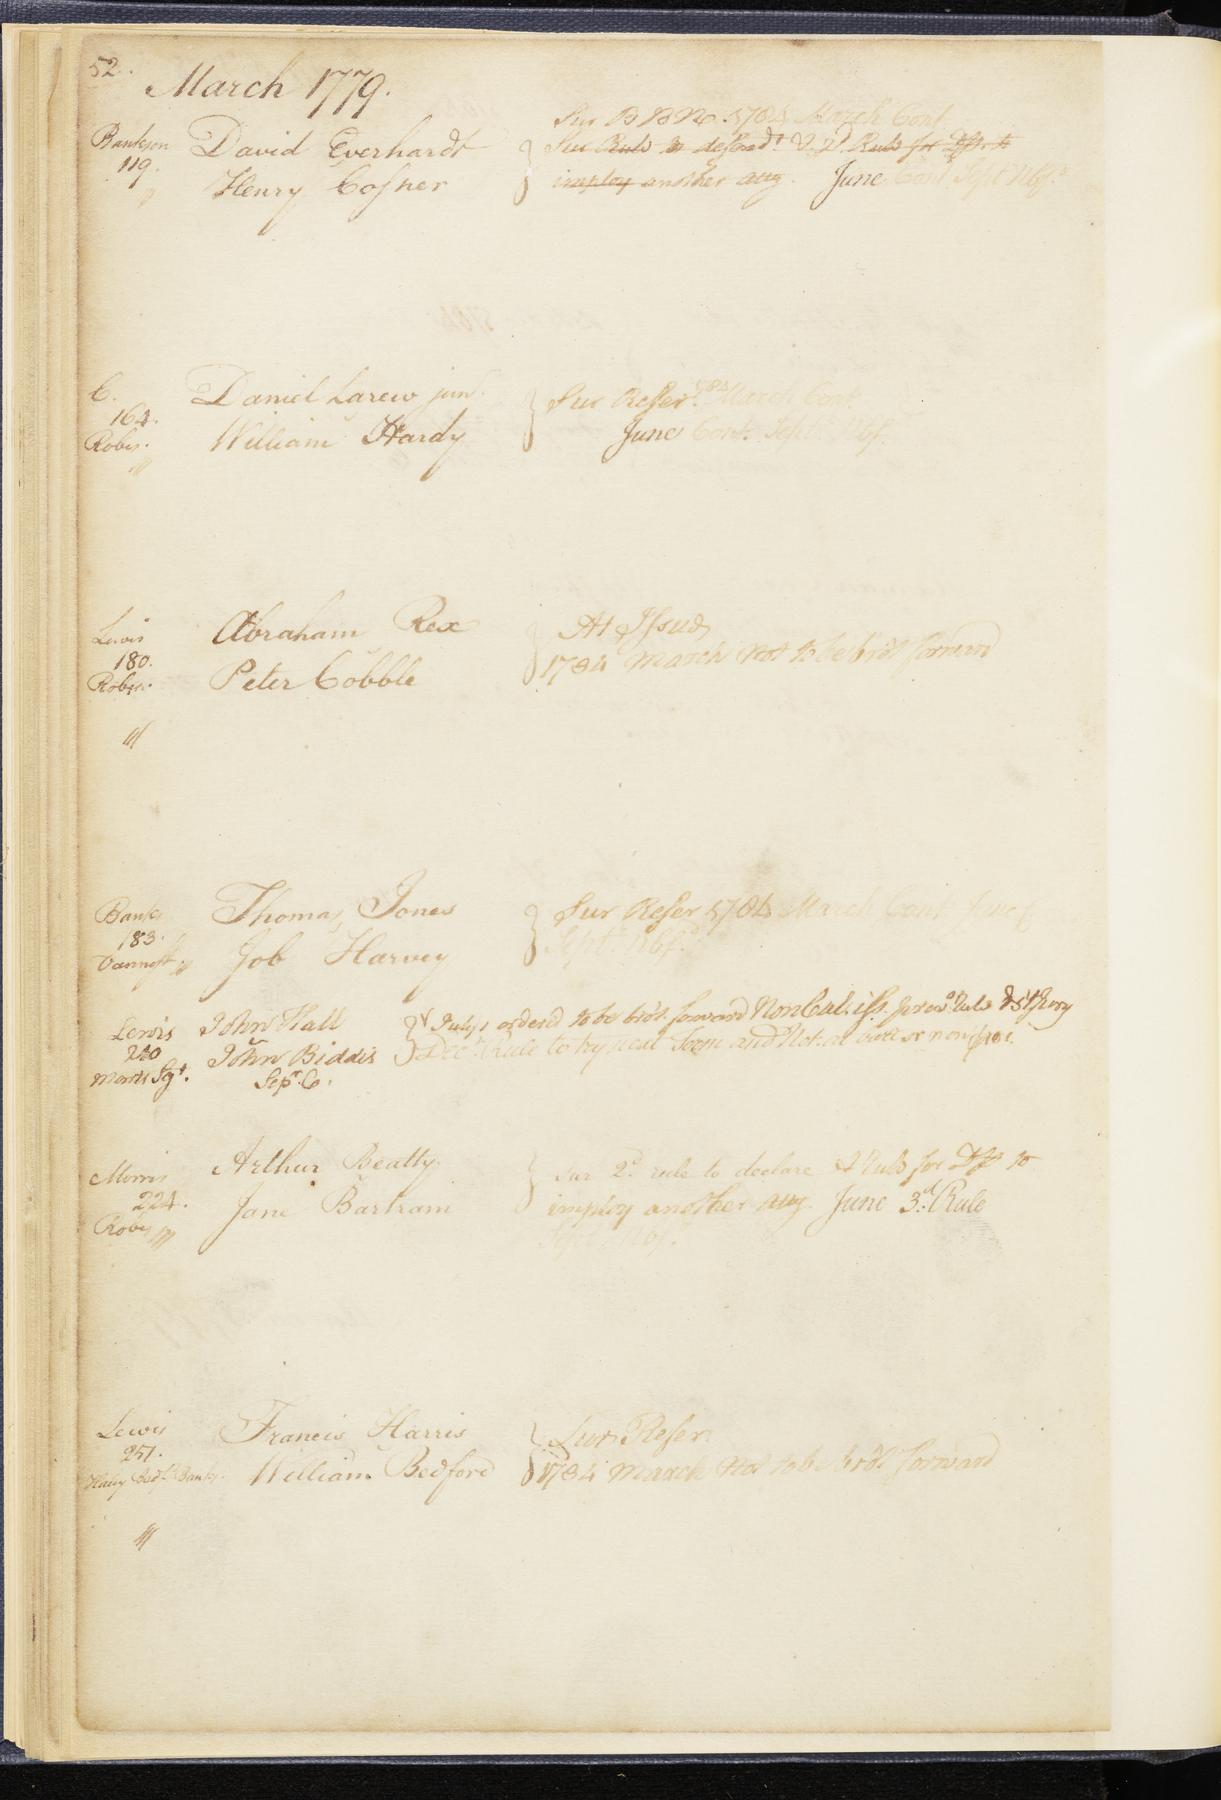 52.
March 1779.
Bankson
119.
David Everhardt
Henry Cosner
Sur B B N. 1784 March Cont
Sur Rule to defend & 2d. Rule for Dft to
imploy another atty. June Cont Sept Nbf.
C.
164.
Robts.
Daniel Larew junr.
William Hardy
Sur Refer. 1784 March Cont
June Cont. Sept Nbf.
Lewis
180.
Roberts.
Abraham Rex
Peter Cobble
At Issue
1784 March Not to be bro't forward
Banks
183.
Thomas Jones
Job Harvey
Sur Refer 1784 March Cont June
Sept. Nbf.
Lewis
220
Morris Sgt.
John Hall
John Biddis
Sepr. 6.
July ordered to be bro't forward Non Cul. iss.
Decr. Rule to try next Term and Not. at bar or non pros.
Morris
224.
Robts
Arthur Beatty.
Jane Bartram
sur 2d. rule to declare & Rule for Dft to
imploy another atty. June 3d. Rule
Sept. Nbf.
Lewis
251.
Francis Harris
William Bedford
Sur Refer.
1784 March Not to be bro't forward